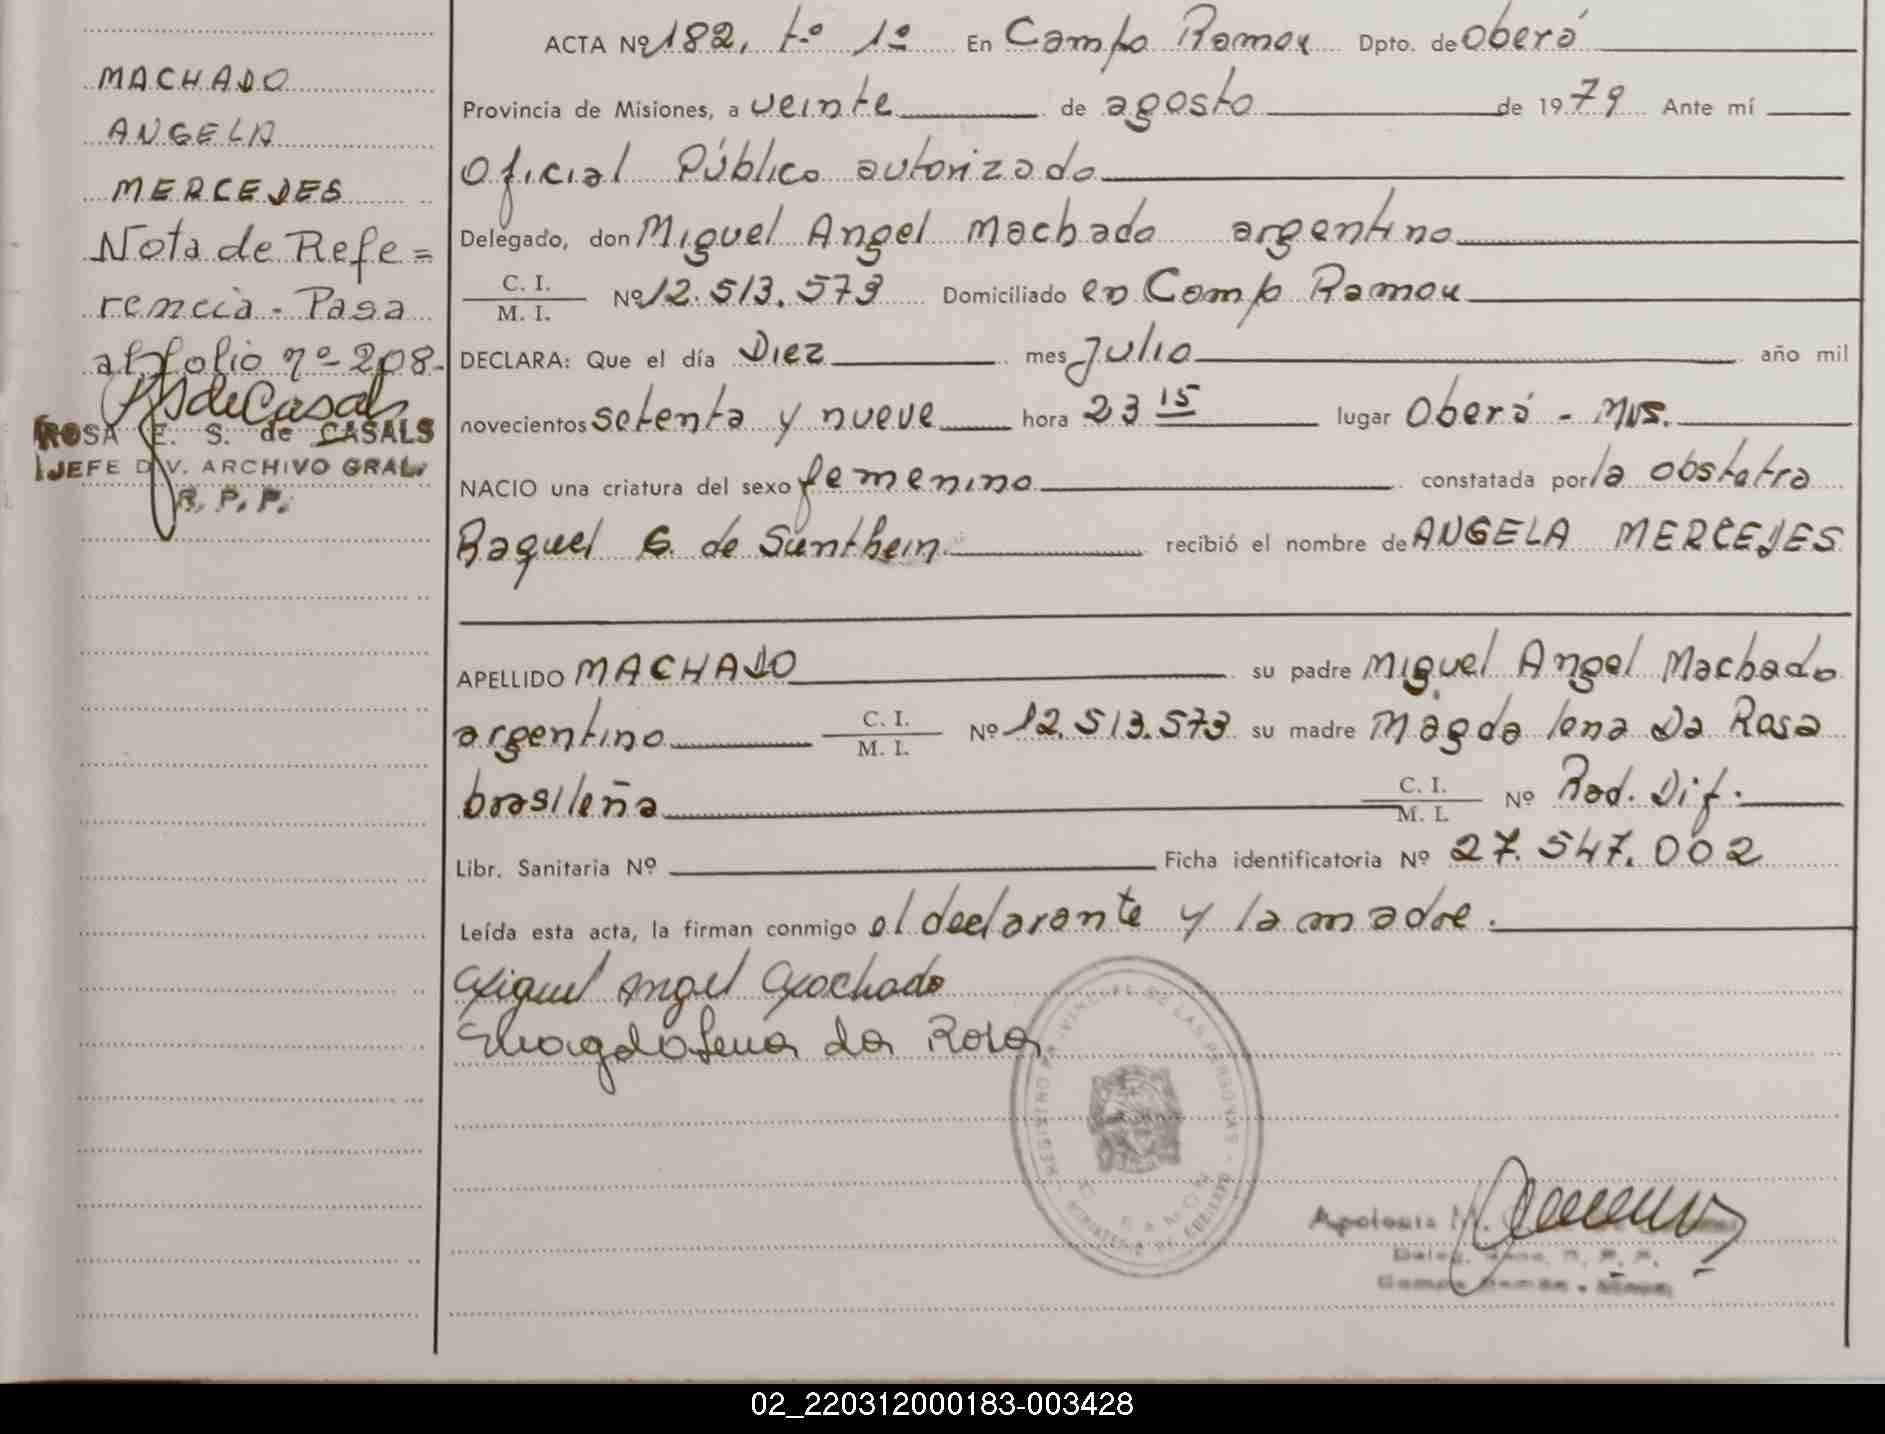 MACHADO
ANGELA
MERCEDES
Nota de Refe=
rencia - Pasa
al folio nº 208-
ROSA E. S. de CASALS
JEFE DIV. ARCHIVO GRAL.
R. P. P.
ACTA Nº 182, tº 1º En Campo Ramon Dpto. de Oberá
Provincia de Misiones, a veinte de agosto de 1979 Ante mí
Oficial Público autorizado
Delegado, don Miguel Angel Machado argentino
C. I.
M. I. Nº 12.513.573 Domiciliado en Campo Ramon
DECLARA: Que el día Diez mes Julio año mil
novecientos setenta y nueve hora 23 15 lugar Oberá - Mns.
NACIO una criatura del sexo femenino constatada por la obstetra
Raquel G. de Sunthein recibió el nombre de ANGELA MERCEDES
APELLIDO MACHADO su padre Miguel Angel Machado
argentino C. I. M. I. Nº 12.513.573 su madre Magdalena Da Rosa
brasileña C. I. M. I. Nº Rad. Dif.
Libr. Sanitaria Nº Ficha identificatoria Nº 27.547.002
Leída esta acta, la firman conmigo el declarante y la madre.
Miguel Angel Machado
Magdalena da Rosa
REGISTRO PROVINCIAL DE LAS PERSONAS
MINISTERIO DE GOBIERNO
Apolonia M.
02_220312000183-003428